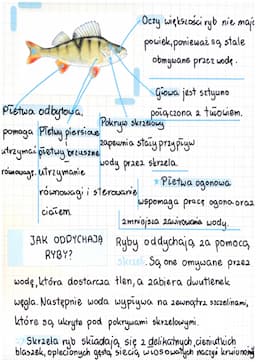 Oczy większości ryb nie mają
powiek, ponieważ są stale
obmywane przez wodę.
Głowa jest sztywno
połączona z tułowiem.
Płetwa odbytowa,
pomaga
utrzymać
równowagę.
Płetwy piersiowe
płetwy brzuszne
utrzymanie
równowagi i sterowanie
ciałem.
Pokrywa skrzelowa
zapewnia stały przypływ
wody przez skrzela.
* Płetwa ogonowa
wspomaga pracę ogona oraz
zmniejsza zawirowania wody.
JAK ODDYCHAJĄ
RYBY?
Ryby oddychają za pomocą
skrzeli. Są one omywane przez
wodę, która dostarcza tlen, a zabiera dwutlenek
węgla. Następnie woda wypływa na zewnątrz szczelinami,
które są ukryte pod pokrywami skrzelowymi.
* Skrzela ryb składają się z delikatnych, cieniutkich
blaszek, oplecionych gęstą siecią włosowatych naczyń krwionośnych